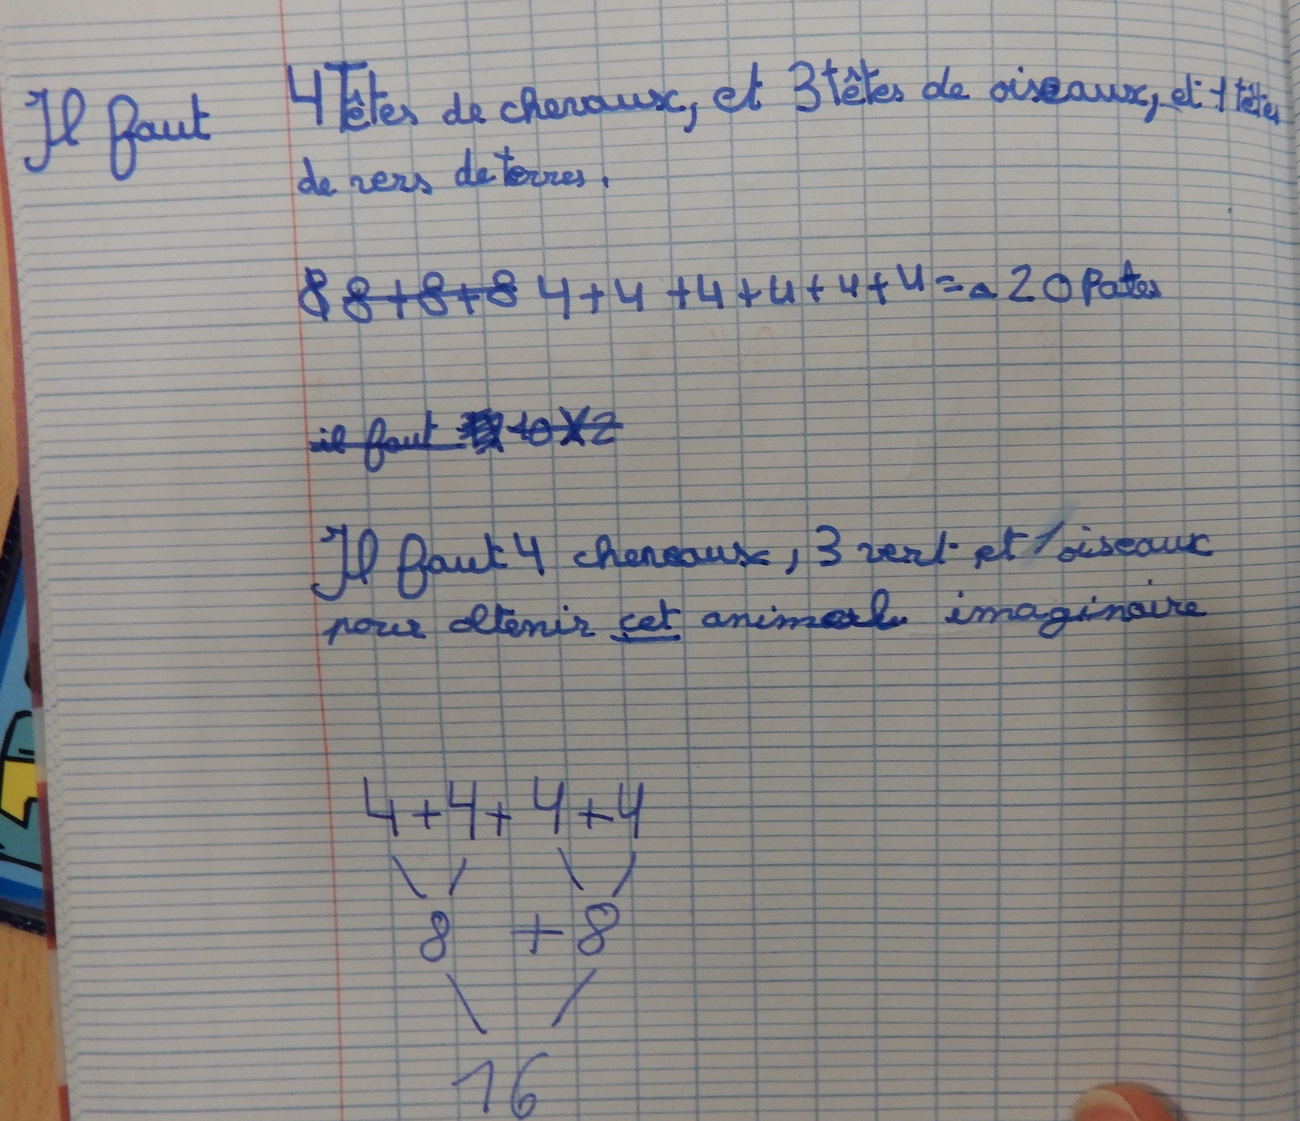 Il faut 4 Têtes de chevaux, et 3 têtes de oiseaux, et 1 têtes
de vers de terres.
8 8+8+8 4+4+4+4+4+4= 20 Pates
il faut 10 X 2
Il faut 4 chevaux, 3 vert et 1 oiseaux
pour obtenir cet animal imaginaire
4+4+4+4
8 +8
16